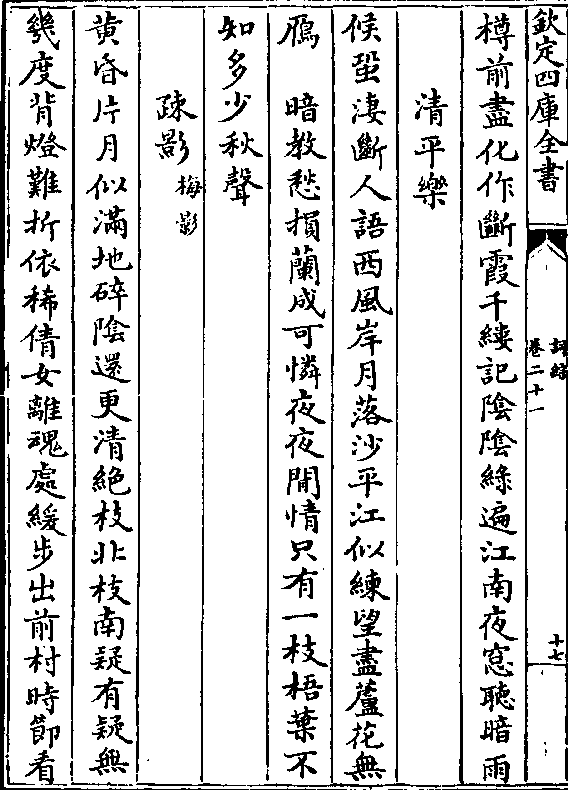 欽定四庫全書
詞綜
卷二十一
十七
樽前盡化作斷霞千縷記陰陰綠遍江南夜窓聽暗雨
清平樂
候蛩淒斷人語西風岸月落沙平江似練望盡蘆花無
鴈　暗教愁損蘭成可憐夜夜閒情只有一枝梧葉不
知多少秋聲
疎影梅影
黄昏片月似滿地碎陰還更清絶枝北枝南疑有疑無
幾度背燈難折依稀倩女離魂處緩步出前村時節看